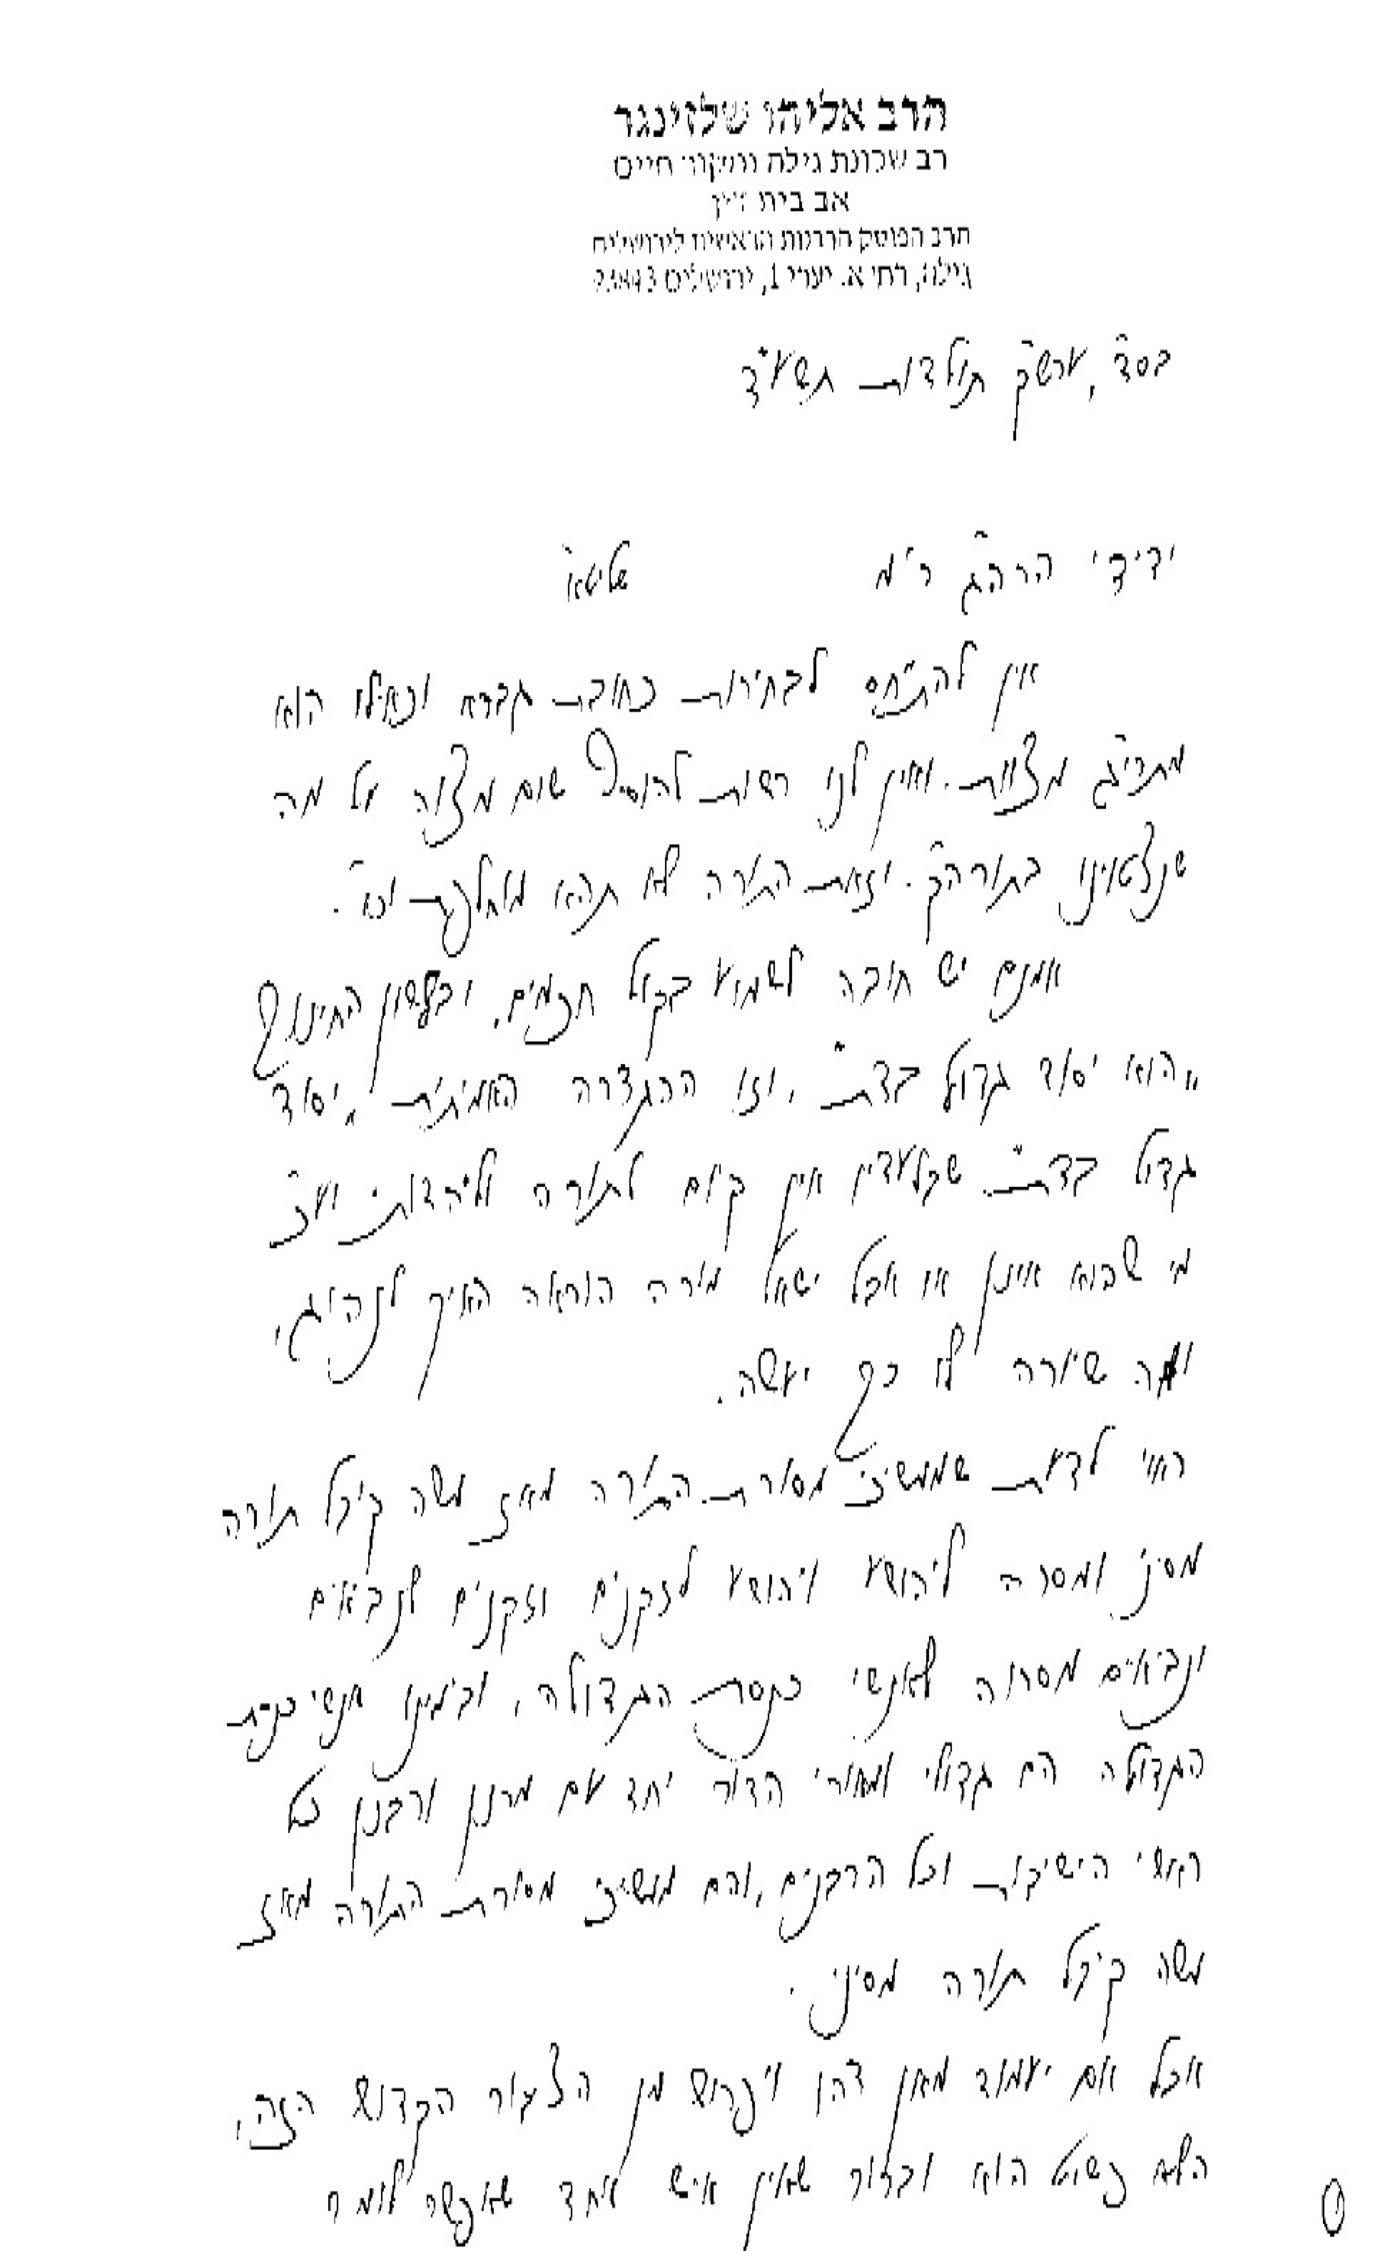 הרב אליהו שלזינגר
רב שכונת גילה ומקור חיים
אב בית דין
חבר הפוסק הרבנות הראשית לירושלים
גילה, רח' א. יערי 1, ירושלים 93843
בסד", ערש"ק תולדות תשע"ד
ידידי הרה"ג ר' מ שליט"א
אין להתיחס לבחירות כחובת גברא וכאילו הוא
מתרי"ג מצוות. ואין לנו רשות להוסיף שום מצוה על מה
שנצטוינו בתורה"ק. וזאת התורה לא תהא מוחלפת וכו'.
אמנם יש חובה לשמוע בקול חכמים, ובלשון החינוך
"הוא יסוד גדול בדת", וזו ההגדרה האמיתית "יסוד
גדול בדת" שבלעדיו אין קיום לתורה וליהדות, וע"כ
מי שהוא אונן או אבל ישאל מורה הוראה האיך לנהוג,
ומה שיורה לו כך יעשה.
ראוי לדעת שממשיכי מסורת התורה מאז משה קיבל תורה
מסיני ומסרה ליהושע ויהושע לזקנים וזקנים לנביאים
ונביאים מסרוה לאנשי כנסת הגדולה, ובימינו אנשי כנסת
הגדולה הם גדולי ומאורי הדור יחד עם מרנן ורבנן כל
ראשי הישיבות וכל הרבנים, והם ממשיכי מסורת התורה מאז
משה קיבל תורה מסיני.
אבל אם יעמוד מאן דהו ויפרוש מן הציבור הקדוש הזה,
הלא פשוט הוא וברור שאין איש אחד שאפשר לומר
1